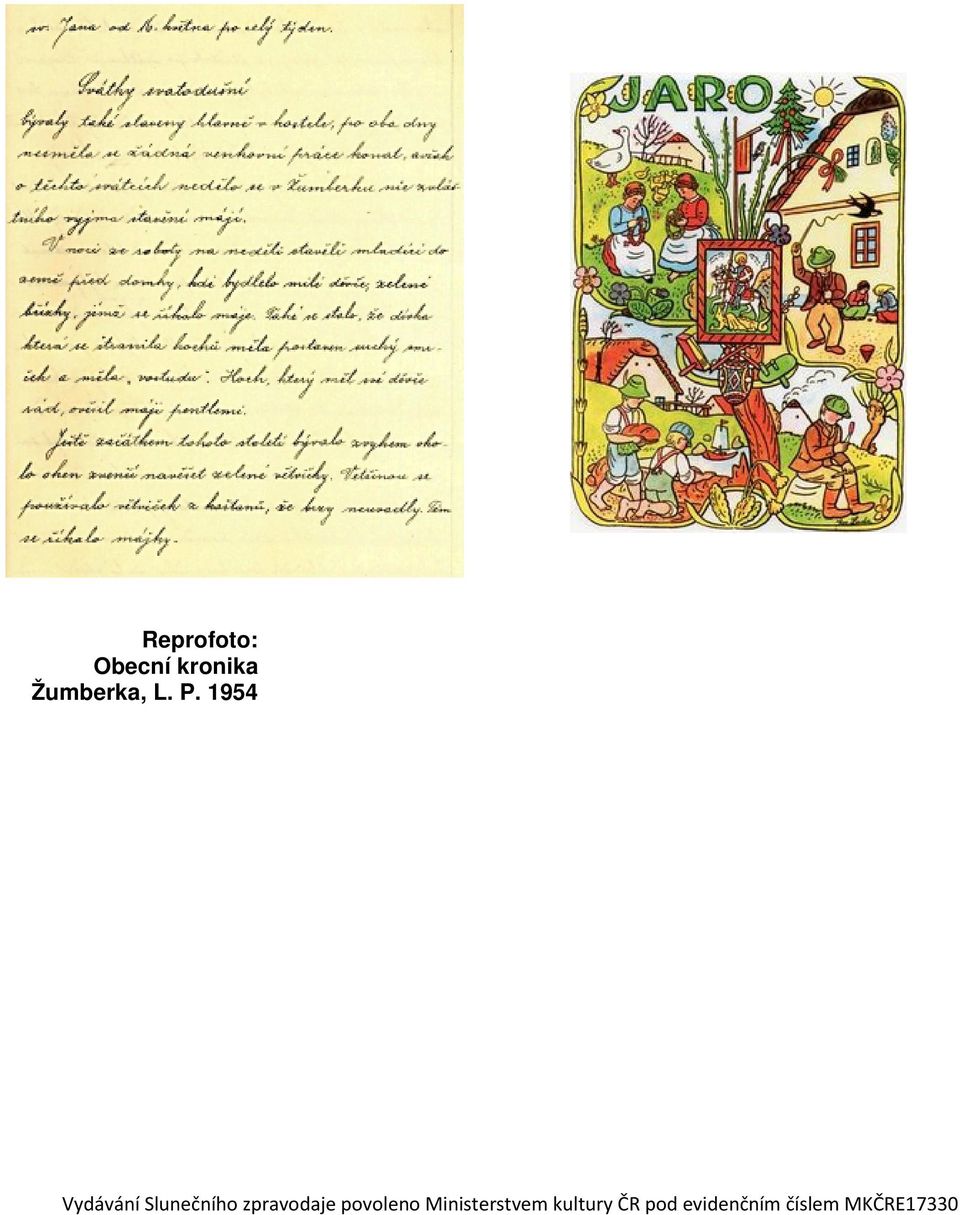 sv. Jana od 16. května po celý týden.
Svátky svatodušní
bývaly také slaveny hlavně v kostele, po oba dny
nesměla se žádná venkovní práce konat, avšak
o těchto svátcích nedělo se v Žumberku nic zvláš-
tního vyjma stavění májí.
V noci ze soboty na neděli stavěli mladíci do
země před domky, kdi bydlelo milé děvče, zelené
břízky, jimž se říkalo máje. Také se stalo, že dívka
která se stranila hochů měla postaven suchý smr-
ček a měla „vostudu". Hoch, který měl své děvče
rád, ověsil máji pentlemi.
Ještě začátkem tohoto století bývalo zvykem oko-
lo oken zvenčí navěšet zelené větvičky. Většinou se
používalo větviček z kaštanů, že brzy neuvadly. Těm
se říkalo májky.
JARO
Jos. Lada
Reprofoto:
Obecní kronika
Žumberka, L. P. 1954
Vydávání Slunečního zpravodaje povoleno Ministerstvem kultury ČR pod evidenčním číslem MKČRE17330